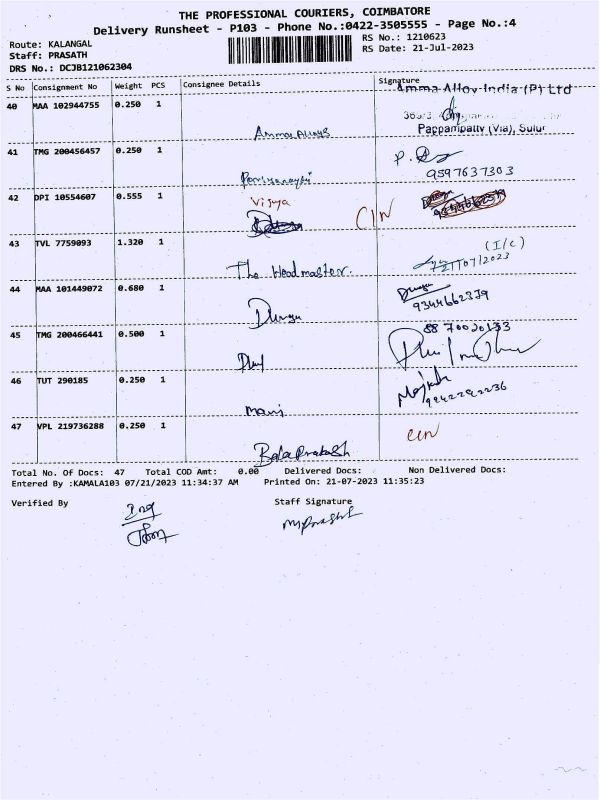 THE PROFESSIONAL COURIERS, COIMBATORE
Delivery Runsheet - P103 - Phone No.:0422-3505555 - Page No.:4
Route: KALANGAL
RS No.: 1210623
Staff: PRASATH
RS Date: 21-Jul-2023
DRS No.: DCJB121062304
S No Consignment No Weight PCS Consignee Details Signature
Amma Alloy India (P) Ltd
40 MAA 102944755 0.250 1
Pappanipatty (Via), Sulur
Amma Alloys
41 TMG 200456457 0.250 1
9597637303
42 DPI 10554607 0.555 1
Vijaya
CIN
43 TVL 7759093 1.320 1
(I/c)
The Headmaster.
21/07/2023
44 MAA 101449072 0.680 1
9344662339
Durga
45 TMG 200466441 0.500 1
88 70020133
46 TUT 290185 0.250 1
Mani
47 VPL 219736288 0.250 1
CIN
Bala Prakash
Total No. Of Docs: 47 Total COD Amt: 0.00 Delivered Docs: Non Delivered Docs:
Entered By :KAMALA103 07/21/2023 11:34:37 AM Printed On: 21-07-2023 11:35:23
Verified By Staff Signature